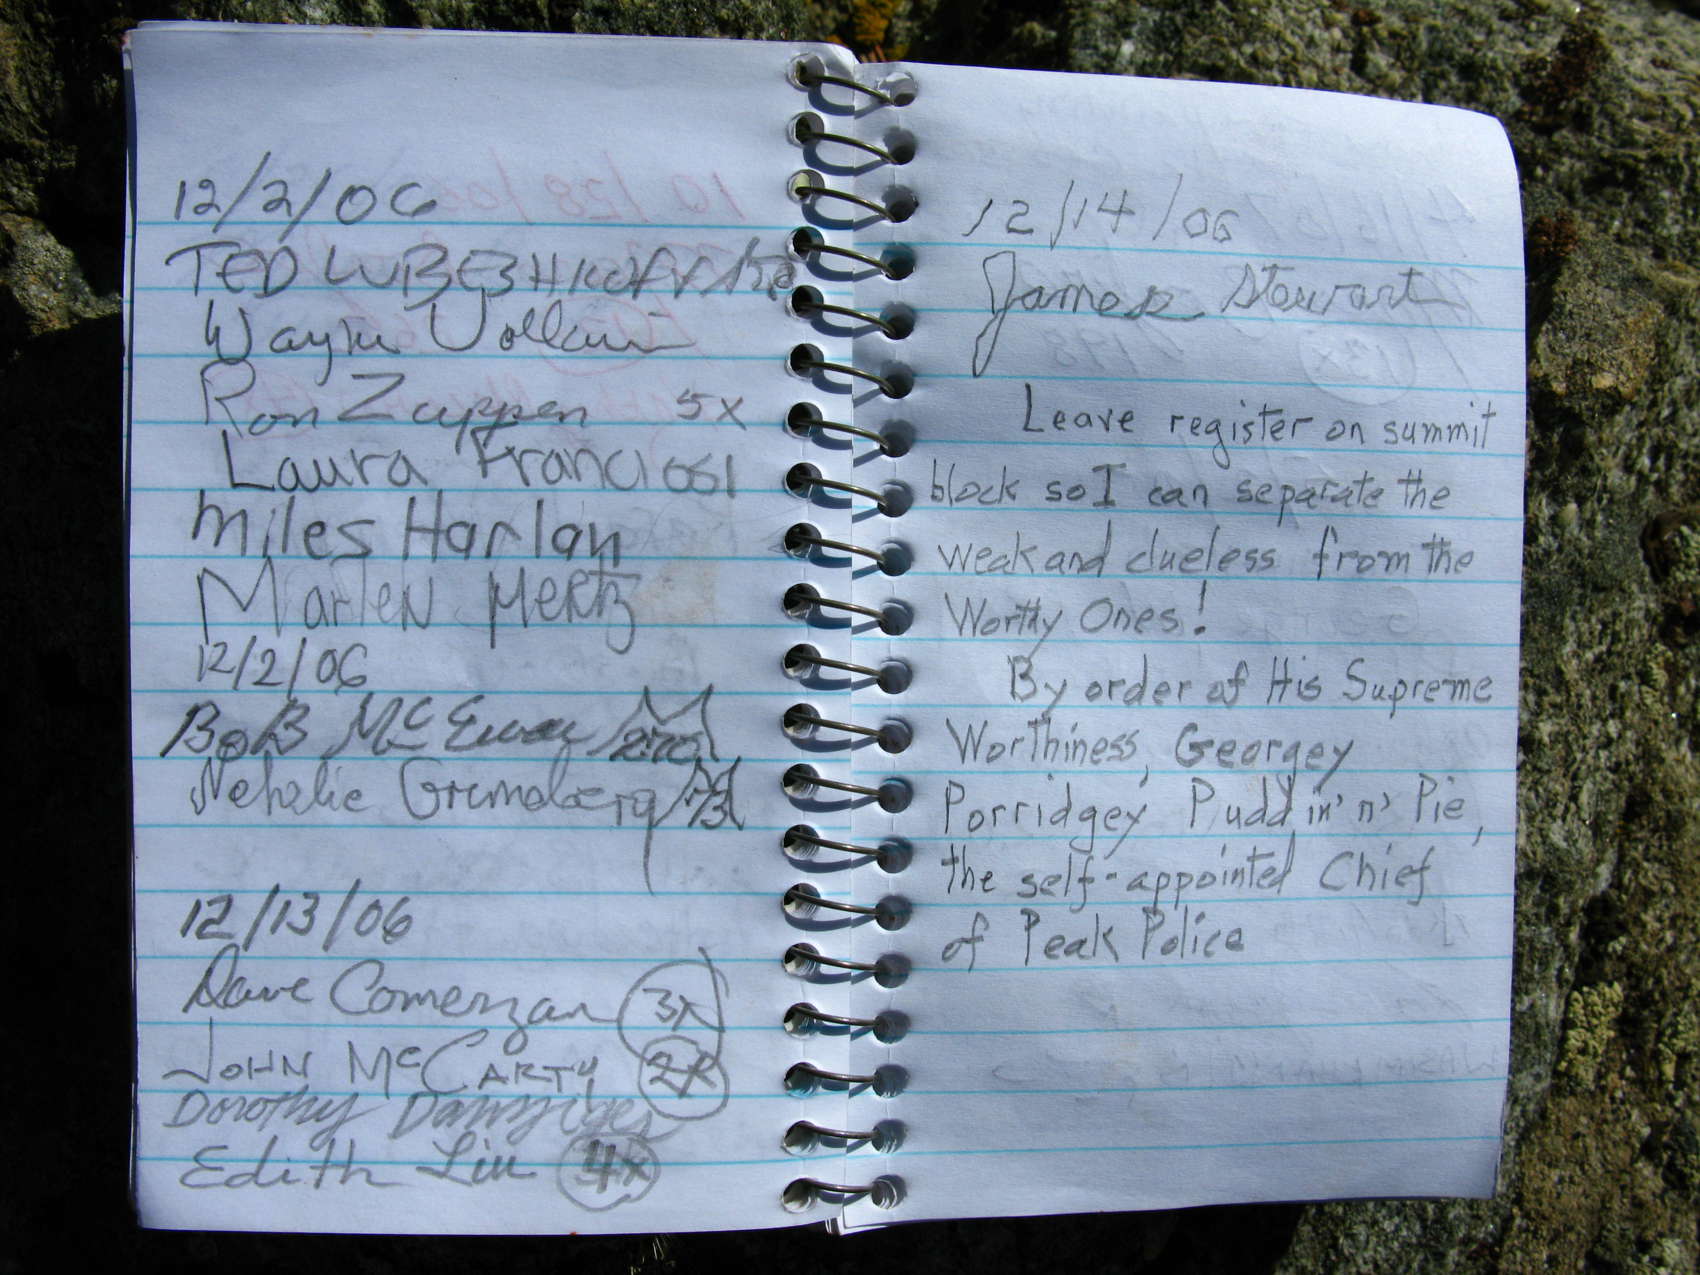 12/2/06
TED
Wayne
Ron Zuppen 5x
Laura Franciosi
Miles Harlan
Marlen Mertz
12/2/06
BoB McEwan 270
Grundberg 73
12/13/06
Dave Comerzan 3x
JOHN McCARTY 2x
Dorothy Danziger
Edith Liu 4x
12/14/06
James Stewart
Leave register on summit
block so I can separate the
weak and clueless from the
Worthy Ones!
By order of His Supreme
Worthiness, Georgey
Porridgey Puddin' n' Pie,
the self-appointed Chief
of Peak Police